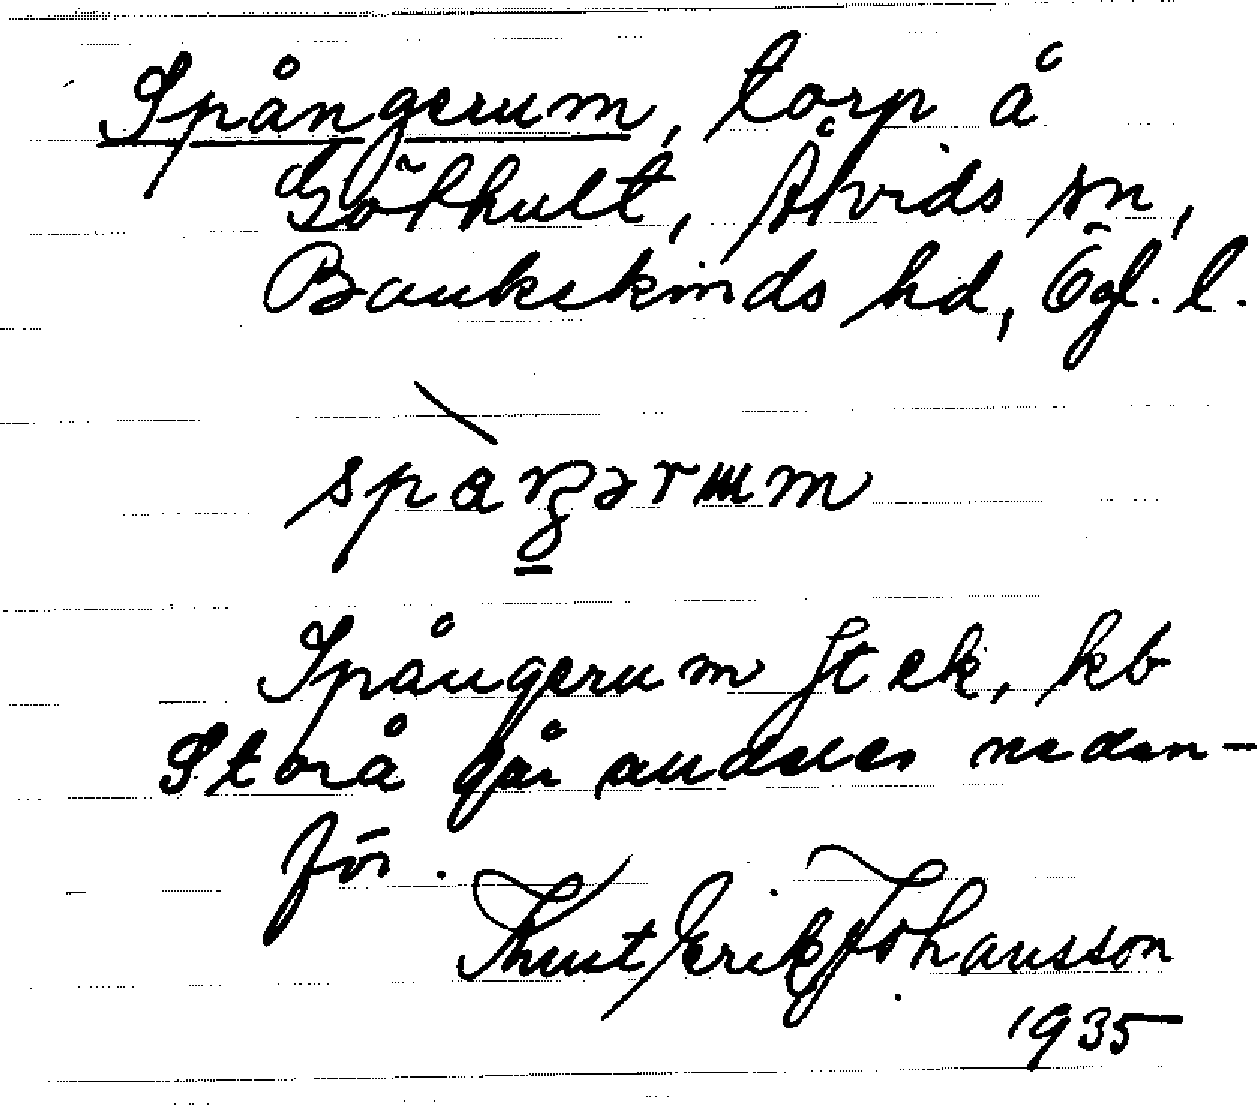 Spångerum, torp å
Gökhult, Åtvids sn,
Bankekinds hd, Ögl. l.
Spångerum Jt ek, kb
Storå går andeles neden-
för.
Knut Erik Johansson
1935